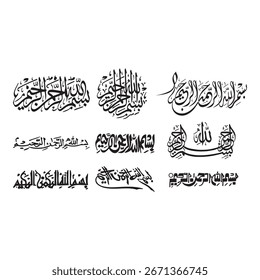 بسم الله الرحمن الرحيم
بسم الله الرحمن الرحيم
بسم الله الرحمن الرحيم
بسم الله الرحمن الرحيم
بسم الله الرحمن الرحيم
بسم الله الرحمن الرحيم
بسم الله الرحمن الرحيم
بسم الله الرحمن الرحيم
بسم الله الرحمن الرحيم
shutterstock.com · 2671366745